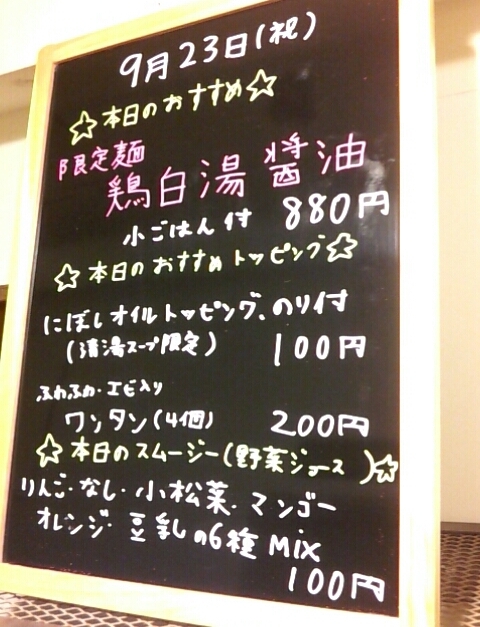 9月23日(祝)
☆本日のおすすめ☆
限定麺
鶏白湯 醤油
小ごはん付 880円
☆本日のおすすめトッピング☆
にぼしオイルトッピング、のり付
(清湯スープ限定) 100円
ふわふわ・エビ入り
ワンタン(4個) 200円
☆本日のスムージー(野菜ジュース)☆
りんご・なし・小松菜・マンゴー
オレンジ・豆乳の6種MIX
100円